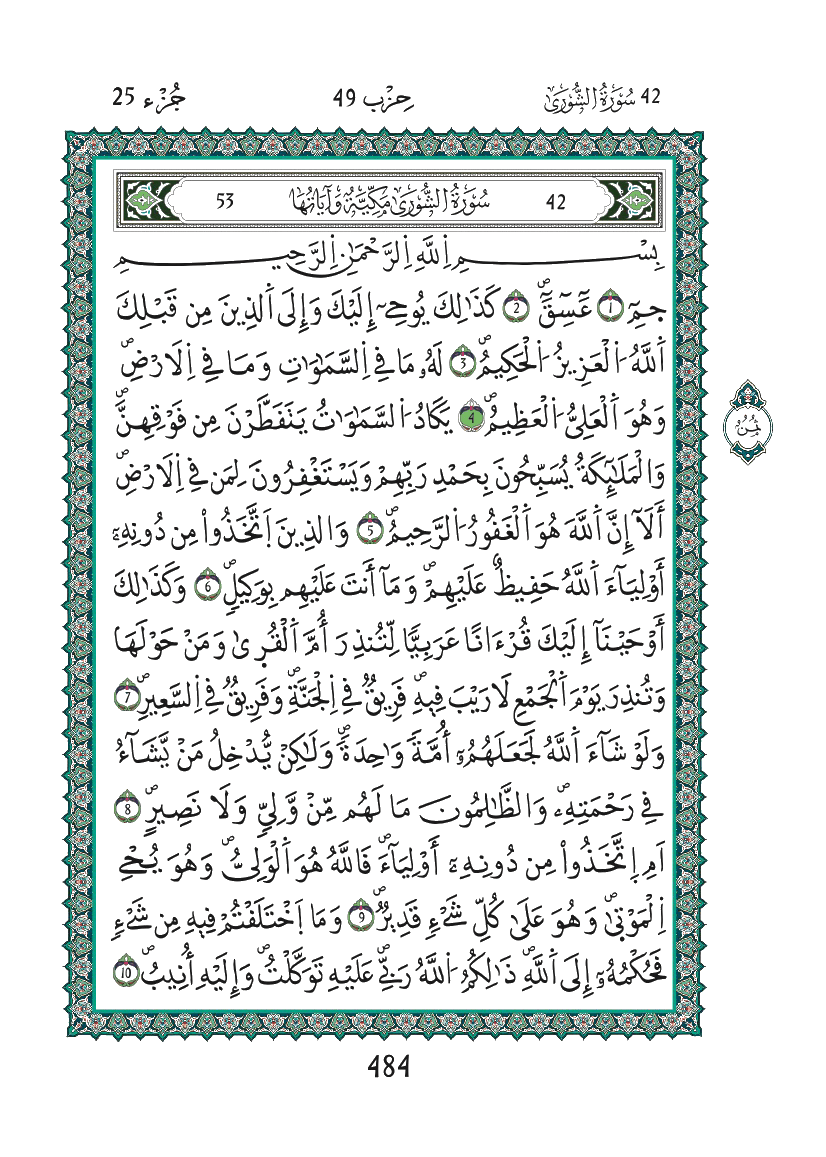 42 سُورَةُ الشُّورَىٰ
حِزْب 49
جُزْء 25
42 سُورَةُ الشُّورَىٰ مَكِّيَّةٌ وَآيَاتُهَا 53
بِسْمِ اِللَّهِ اِلرَّحْمَٰنِ اِلرَّحِيمِ
حمِٓ 1 عٓسِٓقَٓۖ 2 كَذَٰلِكَ يُوحِےٓ إِلَيْكَ وَإِلَى اَلذِينَ مِن قَبْلِكَ
اَللَّهُ اُلْعَزِيزُ اُلْحَكِيمُۖ 3 لَهُۥ مَا فِے اِلسَّمَٰوَٰتِ وَمَا فِے اِلَارْضِۖ
وَهُوَ اَلْعَلِيُّ اُلْعَظِيمُۖ 4 يَكَادُ اُلسَّمَٰوَٰتُ يَتَفَطَّرْنَ مِن فَوْقِهِنَّۖ
وَالْمَلَٰٓئِكَةُ يُسَبِّحُونَ بِحَمْدِ رَبِّهِمْ وَيَسْتَغْفِرُونَ لِمَن فِے اِلَارْضِۖ
أَلَآ إِنَّ اَللَّهَ هُوَ اَلْغَفُورُ اُلرَّحِيمُۖ 5 وَالذِينَ اَتَّخَذُواْ مِن دُونِهِۦٓ
أَوْلِيَآءَ اَللَّهُ حَفِيظٌ عَلَيْهِمْۖ وَمَآ أَنتَ عَلَيْهِم بِوَكِيلٖۖ 6 وَكَذَٰلِكَ
أَوْحَيْنَآ إِلَيْكَ قُرْءَاناً عَرَبِيّاٗ لِّتُنذِرَ أُمَّ اَلْقُر۪ىٰ وَمَنْ حَوْلَهَا
وَتُنذِرَ يَوْمَ اَلْجَمْعِ لَا رَيْبَ فِيهِۖ فَرِيقٞ فِے اِلْجَنَّةِۖ وَفَرِيقٞ فِے اِلسَّعِيرِۖ 7
وَلَوْ شَآءَ اَللَّهُ لَجَعَلَهُمُۥٓ أُمَّةٗ وَٰحِدَةٗۖ وَلَٰكِنْ يُّدْخِلُ مَنْ يَّشَآءُ
فِے رَحْمَتِهِۦۖ وَالظَّٰلِمُونَ مَا لَهُم مِّنْ وَّلِيّٖ وَلَا نَصِيرٍۖ 8
اَمِ اِتَّخَذُواْ مِن دُونِهِۦٓ أَوْلِيَآءَۖ فَاللَّهُ هُوَ اَلْوَلِيُّۖ وَهُوَ يُحْيِ
اِلْمَوْت۪ىٰۖ وَهُوَ عَلَىٰ كُلِّ شَےْءٖ قَدِيرٞۖ 9 وَمَا اَخْتَلَفْتُمْ فِيهِ مِن شَےْءٖ
فَحُكْمُهُۥٓ إِلَى اَللَّهِۖ ذَٰلِكُمُ اُللَّهُ رَبِّے عَلَيْهِ تَوَكَّلْتُۖ وَإِلَيْهِ أُنِيبُۖ 10
ثُمُنُ
484